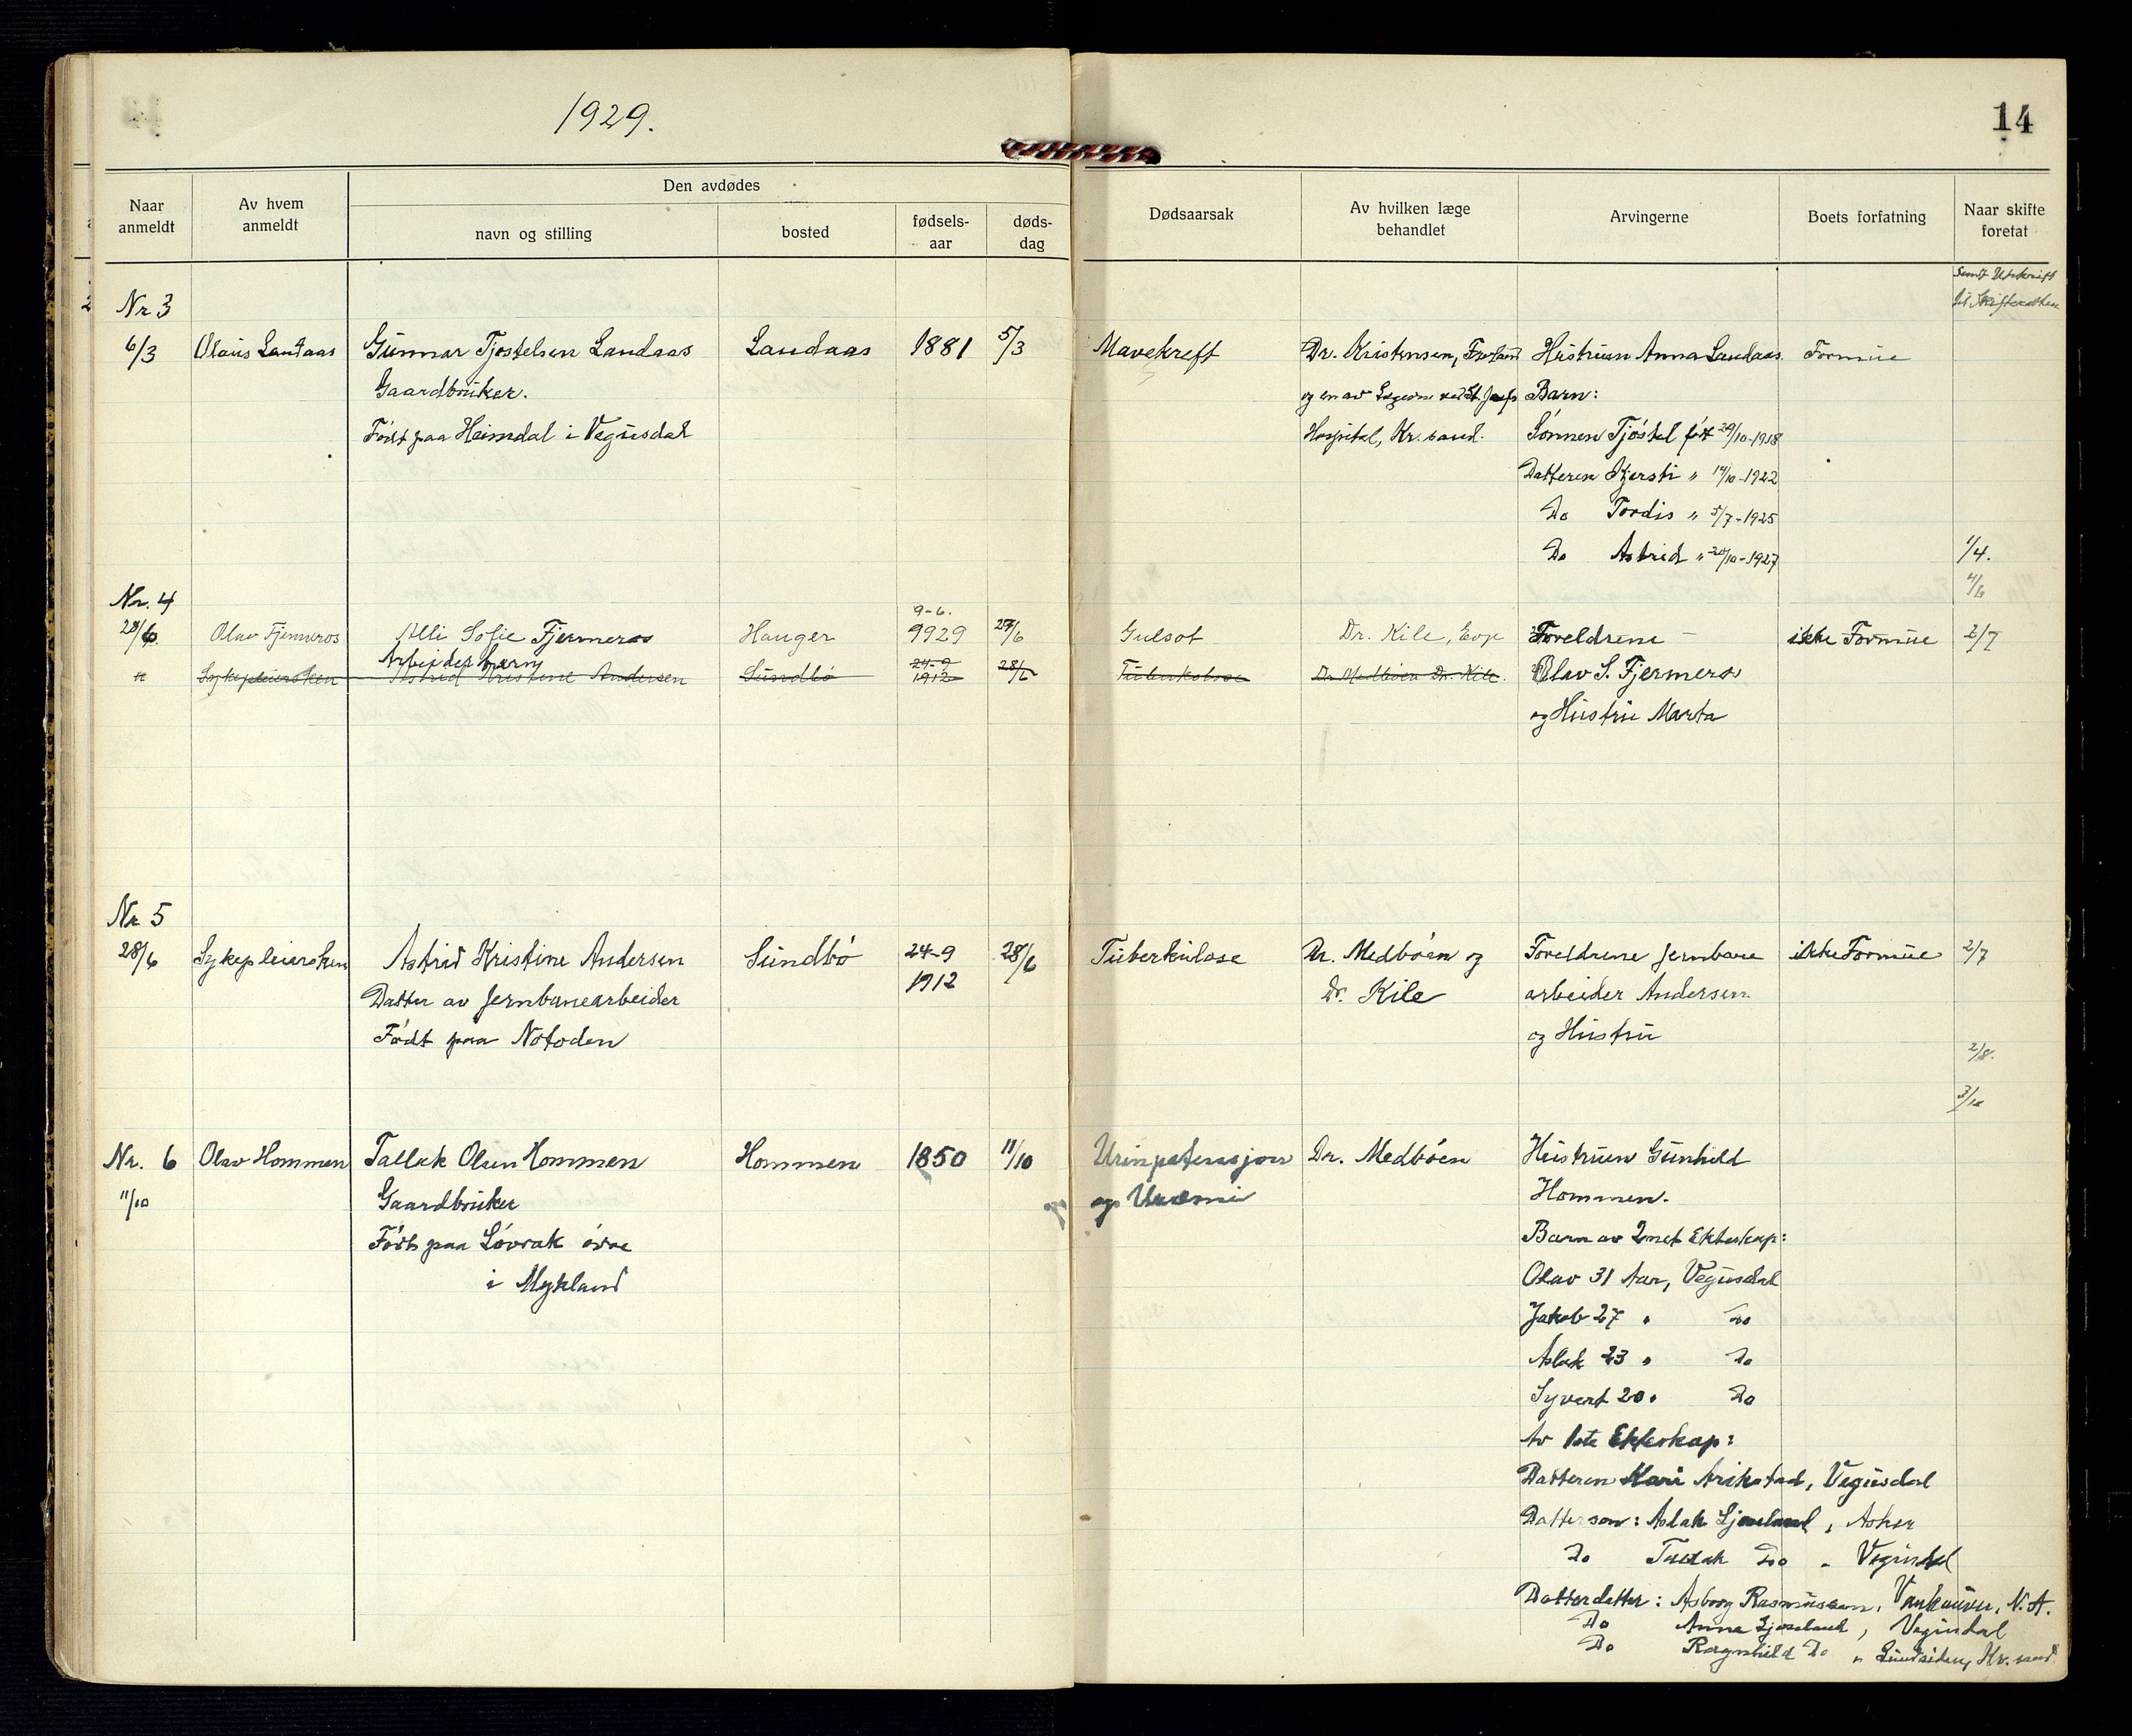 1929.
14
Naar anmeldt
Av hvem anmeldt
Den avdødes
navn og stilling
bosted
fødsels-aar
døds-dag
Dødsaarsak
Av hvilken læge behandlet
Arvingerne
Boets forfatning
Naar skifte foretat
Sendt Utskrift
til Skifteretten
Nr 3
6/3 Olaus Landaas Gunnar Tjøstelsen Landaas Landaas 1881 5/3 Mavekreft Dr. Kristensen, Hustruen Anna Landaas Formue
Gaardbruker. og en av Lægerne ved St. Josefs Barn:
Født paa Heimdal i Vegusdal Hospital, Kr. sand. Sønnen Tjøstel født 29/10-1918
Datteren Kjersti " 14/10-1922
Do Tordis " 5/7-1925
Do Astrid " 20/10-1927 1/4.
4/6
Nr. 4 9-6.
28/6 Olav Fjermeros Alli Sofie Fjermeros Hauger 9929 27/6 Gulsot Dr. Kile, Evje Foreldrene ikke Formue 2/7
Arbeider barn
" Sykepleiersken Astrid Kristine Andersen Sundbø 24-9 1912 28/6 Tuberkulose Dr Medbøen Dr. Kile. Olav S. Fjermeros
og Hustru Marta
Nr 5
28/6 Sykepleiersken Astrid Kristine Andersen Sundbø 24-9 28/6 Tuberkulose Dr. Medbøen og Foreldrene Jernbane ikke Formue 2/7
Datter av Jernbanearbeider 1912 Dr. Kile arbeider Andersen
Født paa Notoden og Hustru
2/8.
3/10
Nr. 6 Olav Hommen Tallak Olsen Hommen Hommen 1850 11/10 Dr. Medbøen Hustruen Gunhild
11/10 Gaardbruker og Uræmi Hommen.
Født paa Løvrak øvre Barn av 2net Ekteskap:
i Mykland Olav 31 Aar, Vegusdal
Jakob 27 " Do
Aslak 23 " Do
Syvert 20 " Do
Av 1ste Ekteskap:
Datteren Kari Vegusdal
Datterson: Aslak Ljoseland, Asker
Do Do " Vegusdal
Datterdatter: Asborg Rasmussen, Vankauver, N.A.
Do Anna Ljoseland, Vegusdal
Do Ragnhild Do " Lundsiden, Kr. sand